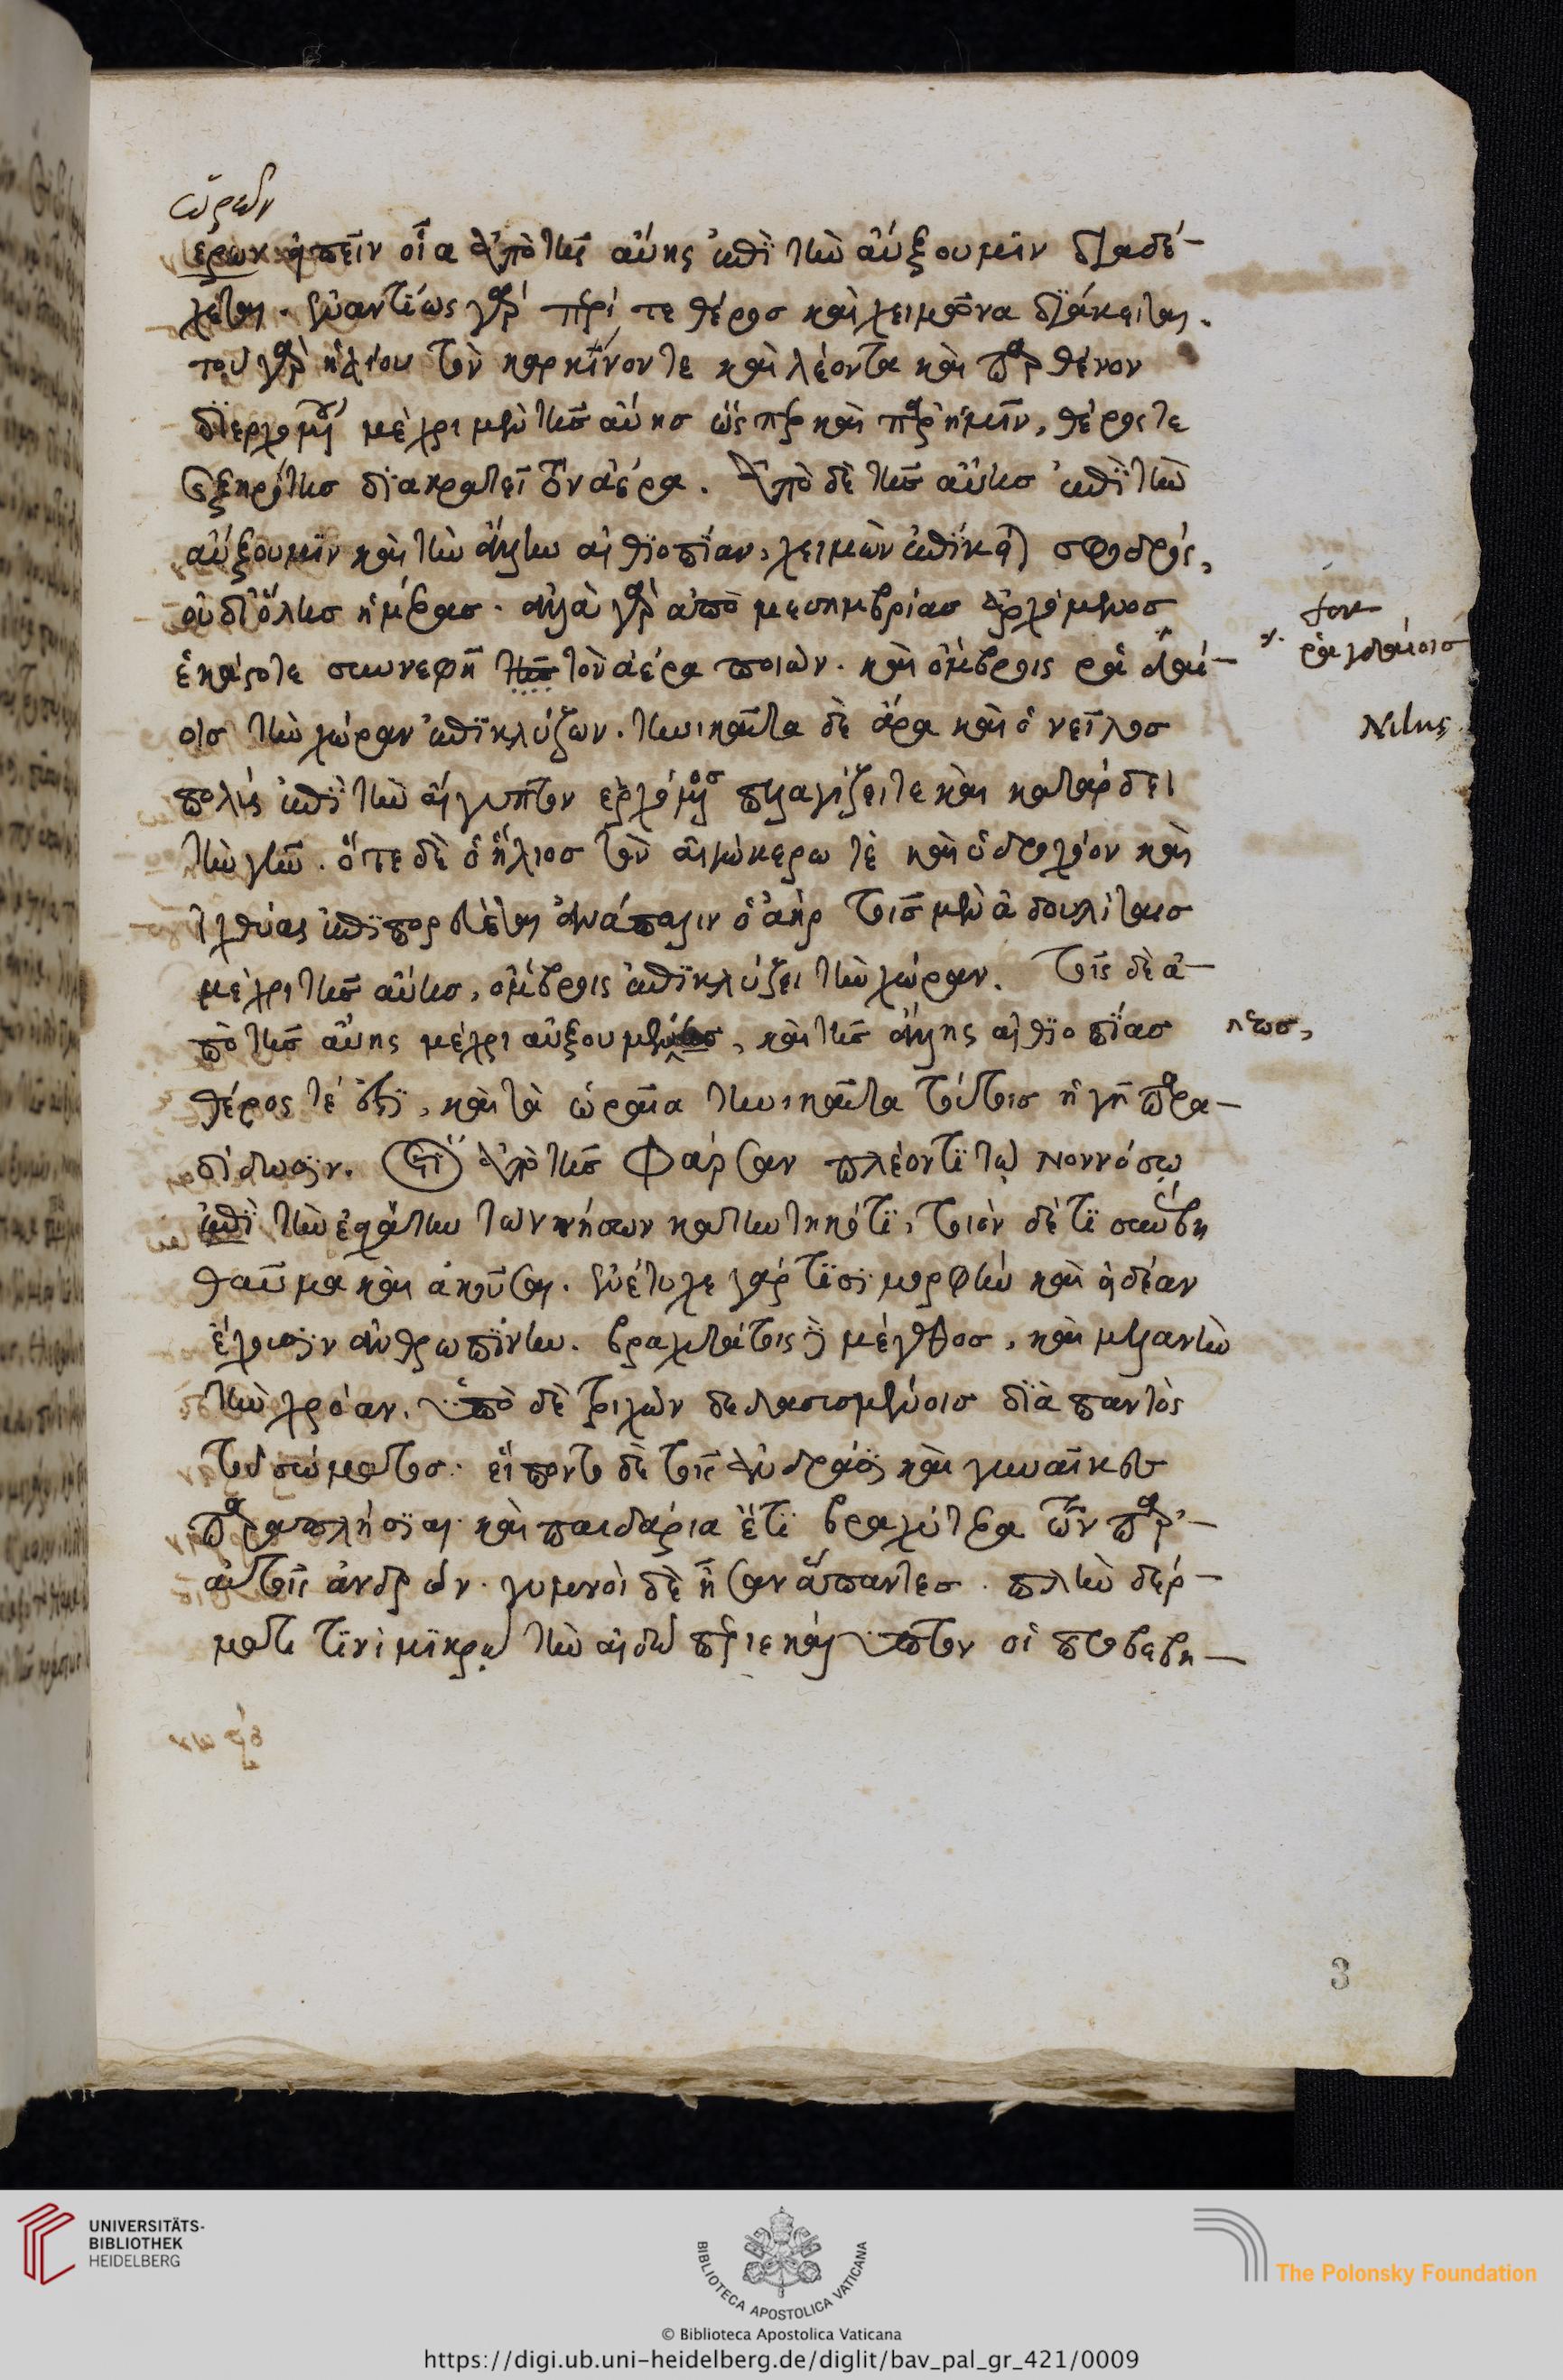 ὡρῶν
ἀέρων εἰπεῖν οἷα ἀπὸ τῆς αὔης ἐπὶ τὴν αὔξουμιν διαδέ-
χεται. ἐναντίως γὰρ περί τε θέρος καὶ χειμῶνα διάκειται.
τοῦ γὰρ ἡλίου τὸν καρκίνον τε καὶ λέοντα καὶ παρθένον
διερχομένου μέχρι μὲν τῆς αὔης ὥσπερ καὶ παρ' ἡμῖν, θέρος τε
ξηρότης διακρατεῖ τὸν ἀέρα. Ἀπὸ δὲ τῆς αὔης ἐπὶ τὴν
αὔξουμιν καὶ τὴν ἄλλην αἰθιοπίαν, χειμὼν ἐπίκειται σφοδρός,
οὐ δι' ὅλης ἡμέρας. ἀλλὰ γὰρ ἀπὸ μεσημβρίας ἀρχόμενος
ἑκάστοτε συννεφῆ τῆς τὸν ἀέρα ποιῶν. καὶ ὄμβροις ραγδαί-
οις τὴν χώραν ἐπικλύζων. τηνικαῦτα δὲ ἄρα καὶ ὁ νεῖλος
πολὺς ἐπὶ τὴν αἴγυπτον ἐρχόμενος πελαγίζει τε καὶ κατάρδει
τὴν γῆν. ὅτε δὲ ὁ ἥλιος τὸν αἰγόκερω τὲ καὶ ὑδροχόον καὶ
ἰχθύας ἐπιπορεύεται ἀνάπαλιν ὁ ἀὴρ τοῖς μὲν ἀδουλίταις
μέχρι τῆς αὔης, ὄμβροις ἐπικλύζει τὴν χώραν. τοῖς δὲ ἀ-
πὸ τῆς αὔης μέχρι αὐξουμένης, καὶ τῆς ἄλλης αἰθιοπίας
θέρος τέ ἐστι, καὶ τὰ ὡραῖα τηνικαῦτα τούτοις ἡ γῆ παρα-
δίδωσιν. ὅτι ἀπὸ τῆς Φαρσὰν πλέοντι τῷ Νοννόσῳ
ἐπὶ τὴν ἐσχάτην τῶν νήσων κατηντηκότι, τοιόν δέ τι συνέβη
θαῦμα καὶ ἀκοῦσαι. ἐνέτυχε γάρ τισι μορφὴν καὶ ἰδέαν
ἔχουσιν ἀνθρωπίνην. βραχυτάτοις δὲ μέγεθος, καὶ μέλανσιν
τὴν χρόαν. ὑπὸ δὲ τριχῶν δεδασυσμένοις διὰ παντὸς
τοῦ σώματος. εἵποντο δὲ τοῖς ἀνδράσι καὶ γυναῖκες
παραπλήσιαι καὶ παιδάρια ἔτι βραχύτερα τῶν παρ'-
αὐτοῖς ἀνδρῶν. γυμνοὶ δὲ ἦσαν ἅπαντες. πλὴν δέρ-
ματι τινὶ μικρῷ τὴν αἰδῶ περιεκάλυπτον οἱ προβεβη-
fort
ραγδαίοις
Nilus
3
UNIVERSITÄTS-
BIBLIOTHEK
HEIDELBERG
BIBLIOTECA APOSTOLICA VATICANA
The Polonsky Foundation
© Biblioteca Apostolica Vaticana
https://digi.ub.uni-heidelberg.de/diglit/bav_pal_gr_421/0009